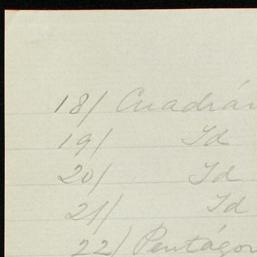 18/ Cuadrán
19/ Id
20/ Id
21/ Id
22/ Pentágon